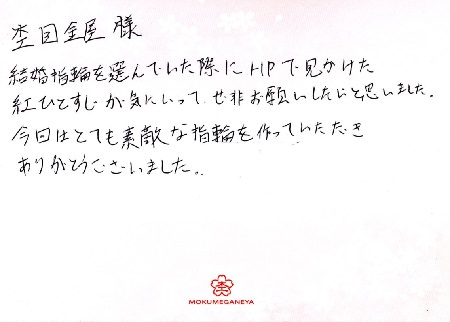 杢目金屋 様
結婚指輪を選んでいた際にHPで見かけた
紅ひとすじが気にいって、ぜ非お願いしたいと思いました。
今回はとても素敵な指輪を作っていただき
ありがとうございました。
杢
MOKUMEGANEYA